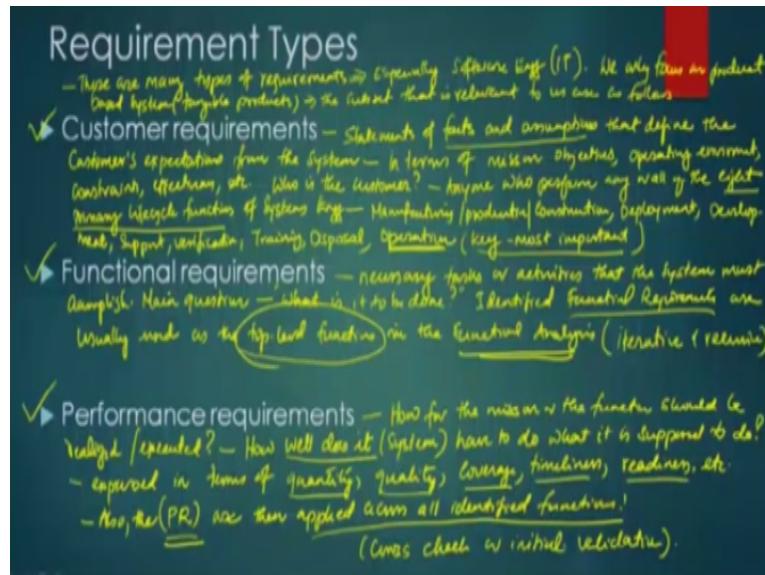 Requirement Types
- There are many types of requirements → Especially Software Engg (IT). We only focus on product
based System (tangible products) → the subset that is relevant to us are as follows
Customer requirements – Statements of facts and assumptions that define the
Customer's expectations from the System – in terms of mission objectives, operating environment,
Constraints, effectiveness, etc. Who is the customer? – Anyone who performs any of the eight
primary lifecycle functions of Systems Engg – Manufacturing/production/Construction, Deployment, Develop-
ment, Support, verification, Training, Disposal, Operation (key-most important)
Functional requirements – necessary tasks or activities that the System must
accomplish. Main question – "What is it to be done?" Identified Functional Requirements are
usually used as the top-level functions in the Functional Analysis (iterative & recursive)
Performance requirements – How far the mission or the function should be
realized/executed? – How well does it (System) have to do what it is supposed to do?
- expressed in terms of quantity, quality, coverage, timeliness, readiness, etc.
- Also, the (PR) are then applied across all identified functions!
(Cross check or initial validation).